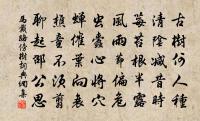 古樹何人種
清陰減昔時
莓苔根半露
風雨節偏危
虫蠹心將穴
蟬催葉向衰
樵童不須剪
聊起邵公思
馬戴路傍樹詞典網集